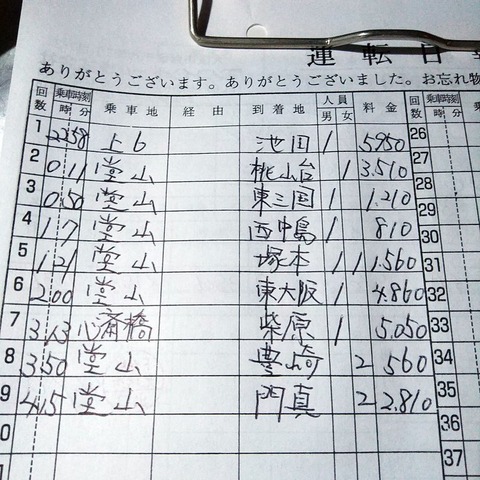 運転日
ありがとうございます。ありがとうございました。お忘れ物
回数 乗車時刻 時 分 乗車地 経由 到着地 人員 男 女 料金 回数 乗車時刻 時 分 乗
1 22 58 上6 池田 1 5950 26
2 0 11 堂山 桃山台 1 3.510 27
3 0 50 堂山 東三国 1 1.210 28
4 1 7 堂山 西中島 1 810 29
5 1 21 堂山 塚本 1 1 1.560 30
6 2 00 堂山 東大阪 1 4.860 31
7 3 13 心斎橋 柴原 1 5.050 32
8 3 50 堂山 豊崎 2 560 33
9 4 15 堂山 門真 2 2.810 34
0 35
36
37